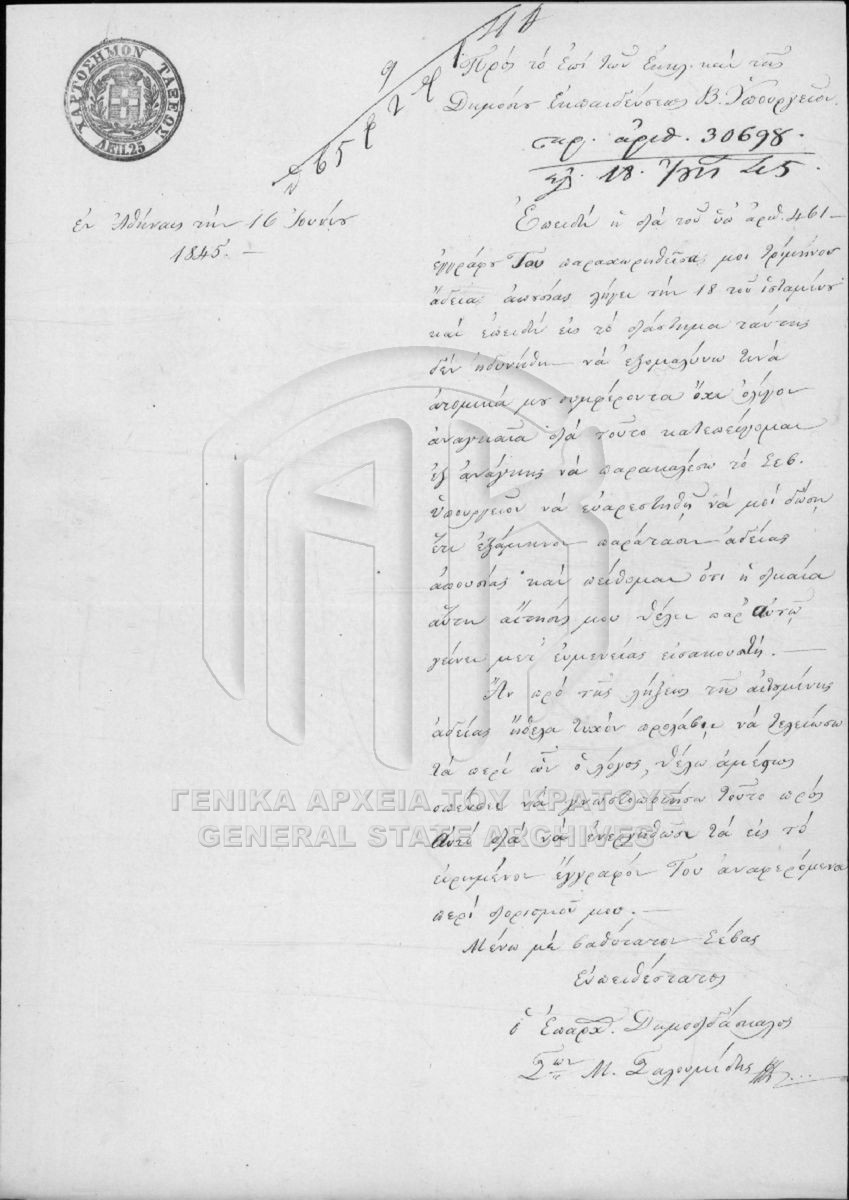 ΧΑΡΤΟΣΗΜΟΝ ΤΑΞΕΩΣ
ΛΕΠ.25
Πρὸς τὸ ἐπὶ τῶν Ἐκκλ. καὶ τῆς
Δημοσίου Ἐκπαιδεύσεως Β. Ὑπουργεῖον.
πρ. ἀριθ. 30698.
ἐλ. 18. 45
ἐν Ἀθήναις τὴν 16 Ἰουνίου
1845. —
Ἐπειδὴ ἡ διὰ τοῦ ὑπ' ἀριθ. 461 —
ἐγγράφου Του παραχωρηθεῖσά μοι τρίμηνος
ἄδεια ἀπουσίας λήγει τὴν 18 τοῦ ἱσταμένου
καὶ ἐπειδὴ εἰς τὸ διάστημα ταύτης
δὲν ἠδυνήθην νὰ ἐξομαλύνω τινὰ
ἀτομικά μου συμφέροντα ὄχι ὀλίγον
ἀναγκαῖα διὰ τοῦτο κατεπείγομαι
ἐξ ἀνάγκης νὰ παρακαλέσω τὸ Σεβ.
Ὑπουργεῖον νὰ εὐαρεστηθῇ νὰ μοὶ δώσῃ
ἔτι ἑξάμηνον παράτασιν ἀδείας
ἀπουσίας καὶ πείθομαι ὅτι ἡ δικαία
αὕτη αἴτησίς μου θέλει παρ' Αὐτῷ
γείνει μετ' εὐμενείας εἰσακουστή. —
Ἂν πρὸ τῆς λήξεως τῆς αἰτουμένης
ἀδείας ἤθελα τυχὸν προλάβει νὰ τελειώσω
τὰ περὶ ὧν ὁ λόγος, θέλω ἀμέσως
σπεύσει νὰ γνωστοποιήσω τοῦτο πρὸς
Αὐτὸ διὰ νὰ ἐνεργηθῶσι τὰ εἰς τὸ
εἰρημένον ἔγγραφόν Του ἀναφερόμενα
περὶ διορισμοῦ μου. —
Μένω μὲ βαθύτατον Σέβας
Εὐπειθέστατος
ὁ Ἐπαρχ. Δημοδιδάσκαλος
Μ. Σαλουμίδης
ΓΕΝΙΚΑ ΑΡΧΕΙΑ ΤΟΥ ΚΡΑΤΟΥΣ
GENERAL STATE ARCHIVES